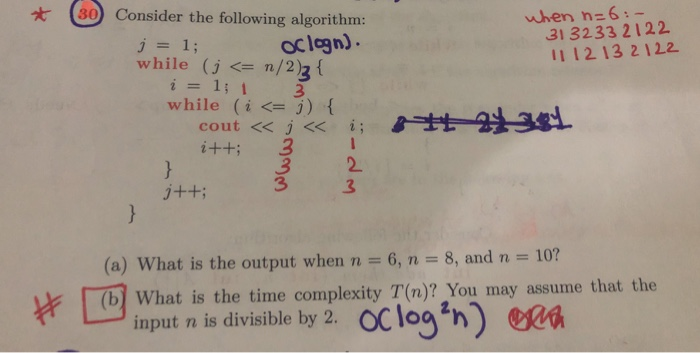 * 30 Consider the following algorithm:
when n=6:-
j = 1; O(logn).
31 32 33 2122
while (j <= n/2) { 3
11 12 13 2122
i = 1; 1 3
while (i <= j) {
cout << j << i;
i++; 3 1
} 3 2
j++; 3 3
}
(a) What is the output when n = 6, n = 8, and n = 10?
# (b) What is the time complexity T(n)? You may assume that the
input n is divisible by 2. O(log²n)